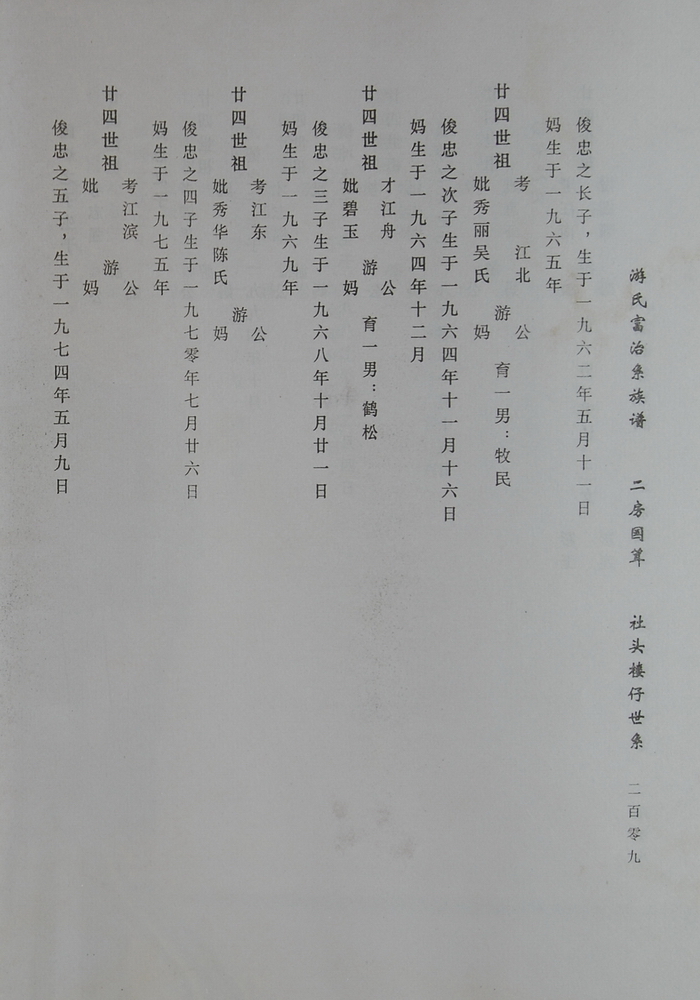 游氏富治系族谱 二房国 社头楼仔世系 二百零九
俊忠之长子，生于一九六二年五月十一日
妈生于一九六五年
考 江北 公
廿四世祖 游 育一男：牧民
妣秀丽吴氏 妈
俊忠之次子生于一九六四年十一月十六日
妈生于一九六四年十二月
才江舟 公
廿四世祖 游 育一男：鹤松
妣碧玉 妈
俊忠之三子生于一九六八年十月廿一日
妈生于一九六九年
考江东 公
廿四世祖 游
妣秀华陈氏 妈
俊忠之四子生于一九七零年七月廿六日
妈生于一九七五年
考江滨 公
廿四世祖 游
妣 妈
俊忠之五子，生于一九七四年五月九日